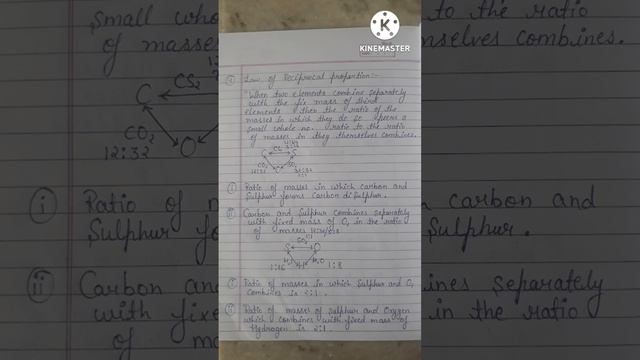 KINEMASTER
small who
to the ratio
of masses
mselves combines.
CS2
C
CO2
12:32
O
i Ratio of m
carbon and
Sulphur fo
Sulphur.
ii Carbon an
ines separately
with fixe
in the ratio
of ma
Law of Reciprocal proportion:-
"When two elements combine separately
with the fix mass of third
elements then the ratio of the
masses in which they do so
small whole no. ratio to the ratio
of masses in they themselves combines.
C CS2 S
CO2 SO2
12:32 O
i Ratio of masses in which carbon and
Sulphur forms carbon disulphur.
ii Carbon and Sulphur combines separately
with fixed mass of O, in the ratio
of masses
SO2
S O
H2O
1:16 H 1:8
i Ratio of masses in which Sulphur and O,
combines is 2:1.
ii Ratio of masses of sulphur and Oxygen
which combines with fixed mass of
Hydrogen is 2:1.